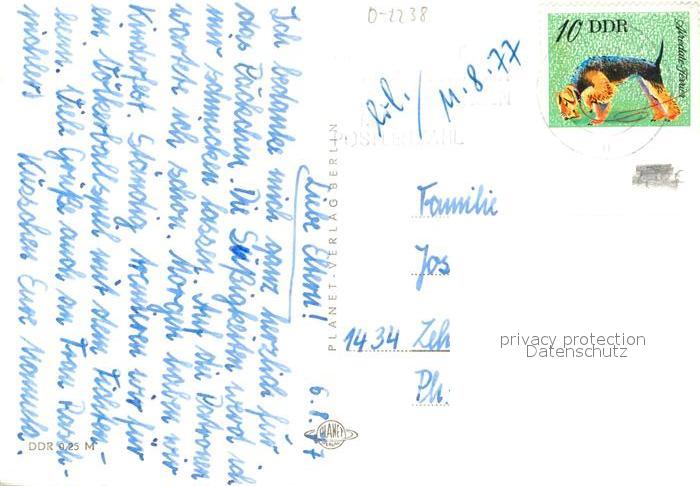 0-2238
10 DDR
Airedale-Terrier
11.8.77
6.8.77
Liebe Eltern!
Ich bedanke mich ganz herzlich für
das Päckchen. Die Süßigkeiten werd ich
mir schmecken lassen. Auf die Patronen
wartete ich schon. Morgen haben wir
Kinderfest. Ständig trainieren wir für
ein Völkerballspiel mit dem
Viele Grüße auch an Frau
Küsschen Eure Manuela.
DDR 0,25 M
PLANET-VERLAG BERLIN
PLANET
Familie
Jos
1434 Zeh
Ph.
privacy protection
Datenschutz